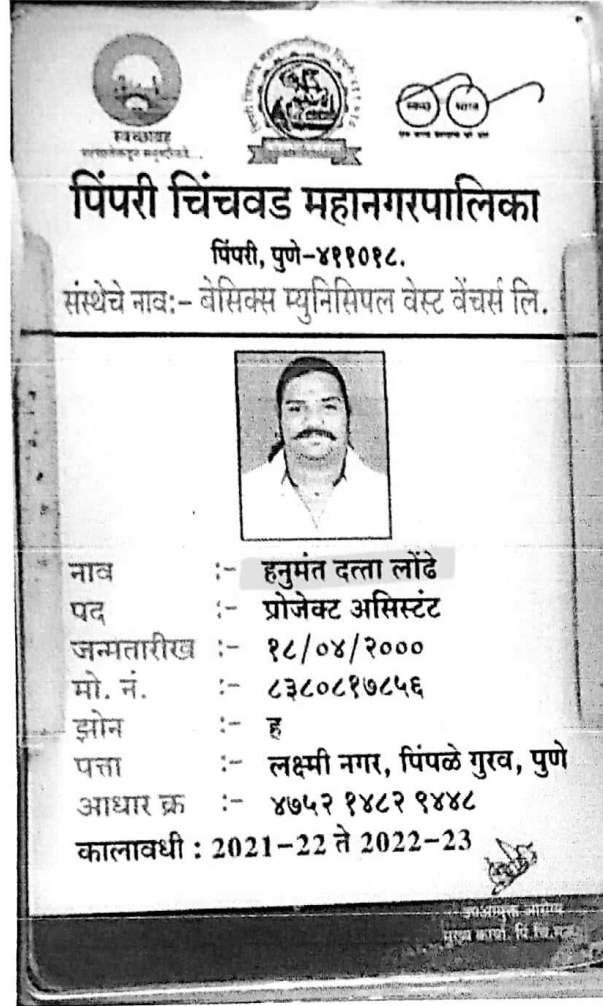 स्वच्छाग्रह
स्वच्छ भारत
एक कदम स्वच्छता की ओर
पिंपरी चिंचवड महानगरपालिका
पिंपरी, पुणे-४११०१८.
संस्थेचे नाव:- बेसिक्स म्युनिसिपल वेस्ट वेंचर्स लि.
नाव :- हनुमंत दत्ता लोंढे
पद :- प्रोजेक्ट असिस्टंट
जन्मतारीख :- १८/०४/२०००
मो. नं. :- ८३८०८१७८५६
झोन :- ह
पत्ता :- लक्ष्मी नगर, पिंपळे गुरव, पुणे
आधार क्र :- ४७५२ १४८२ ९४४८
कालावधी : 2021-22 ते 2022-23
उपआयुक्त आरोग्य
मुख्य कार्या. पिं.चिं.म.